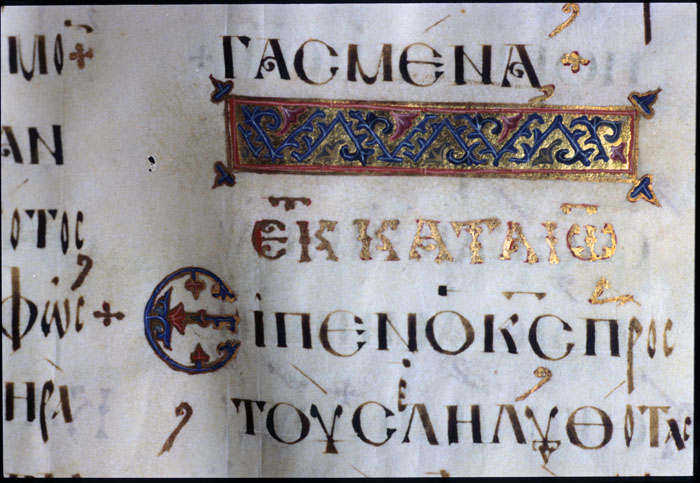 ΙΜΟ
ΑΝ
ΟΤΟϹ
ΦῶϹ
ΗΡΑ
ΓΑϹΜΕΝΑ
ΕΚ Κ ΚΑΤΑ ΙΩ
ΕΙΠΕΝ Ο ΚϹ ΠΡΟϹ
ΤΟΥϹ ΕΛΗΛΥΘΟΤΑϹ